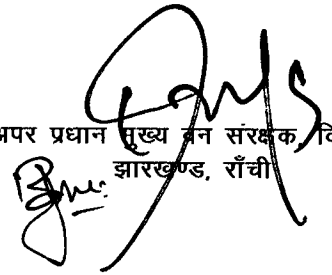 अपर प्रधान मुख्य वन संरक्षक, वि
झारखण्ड, राँची